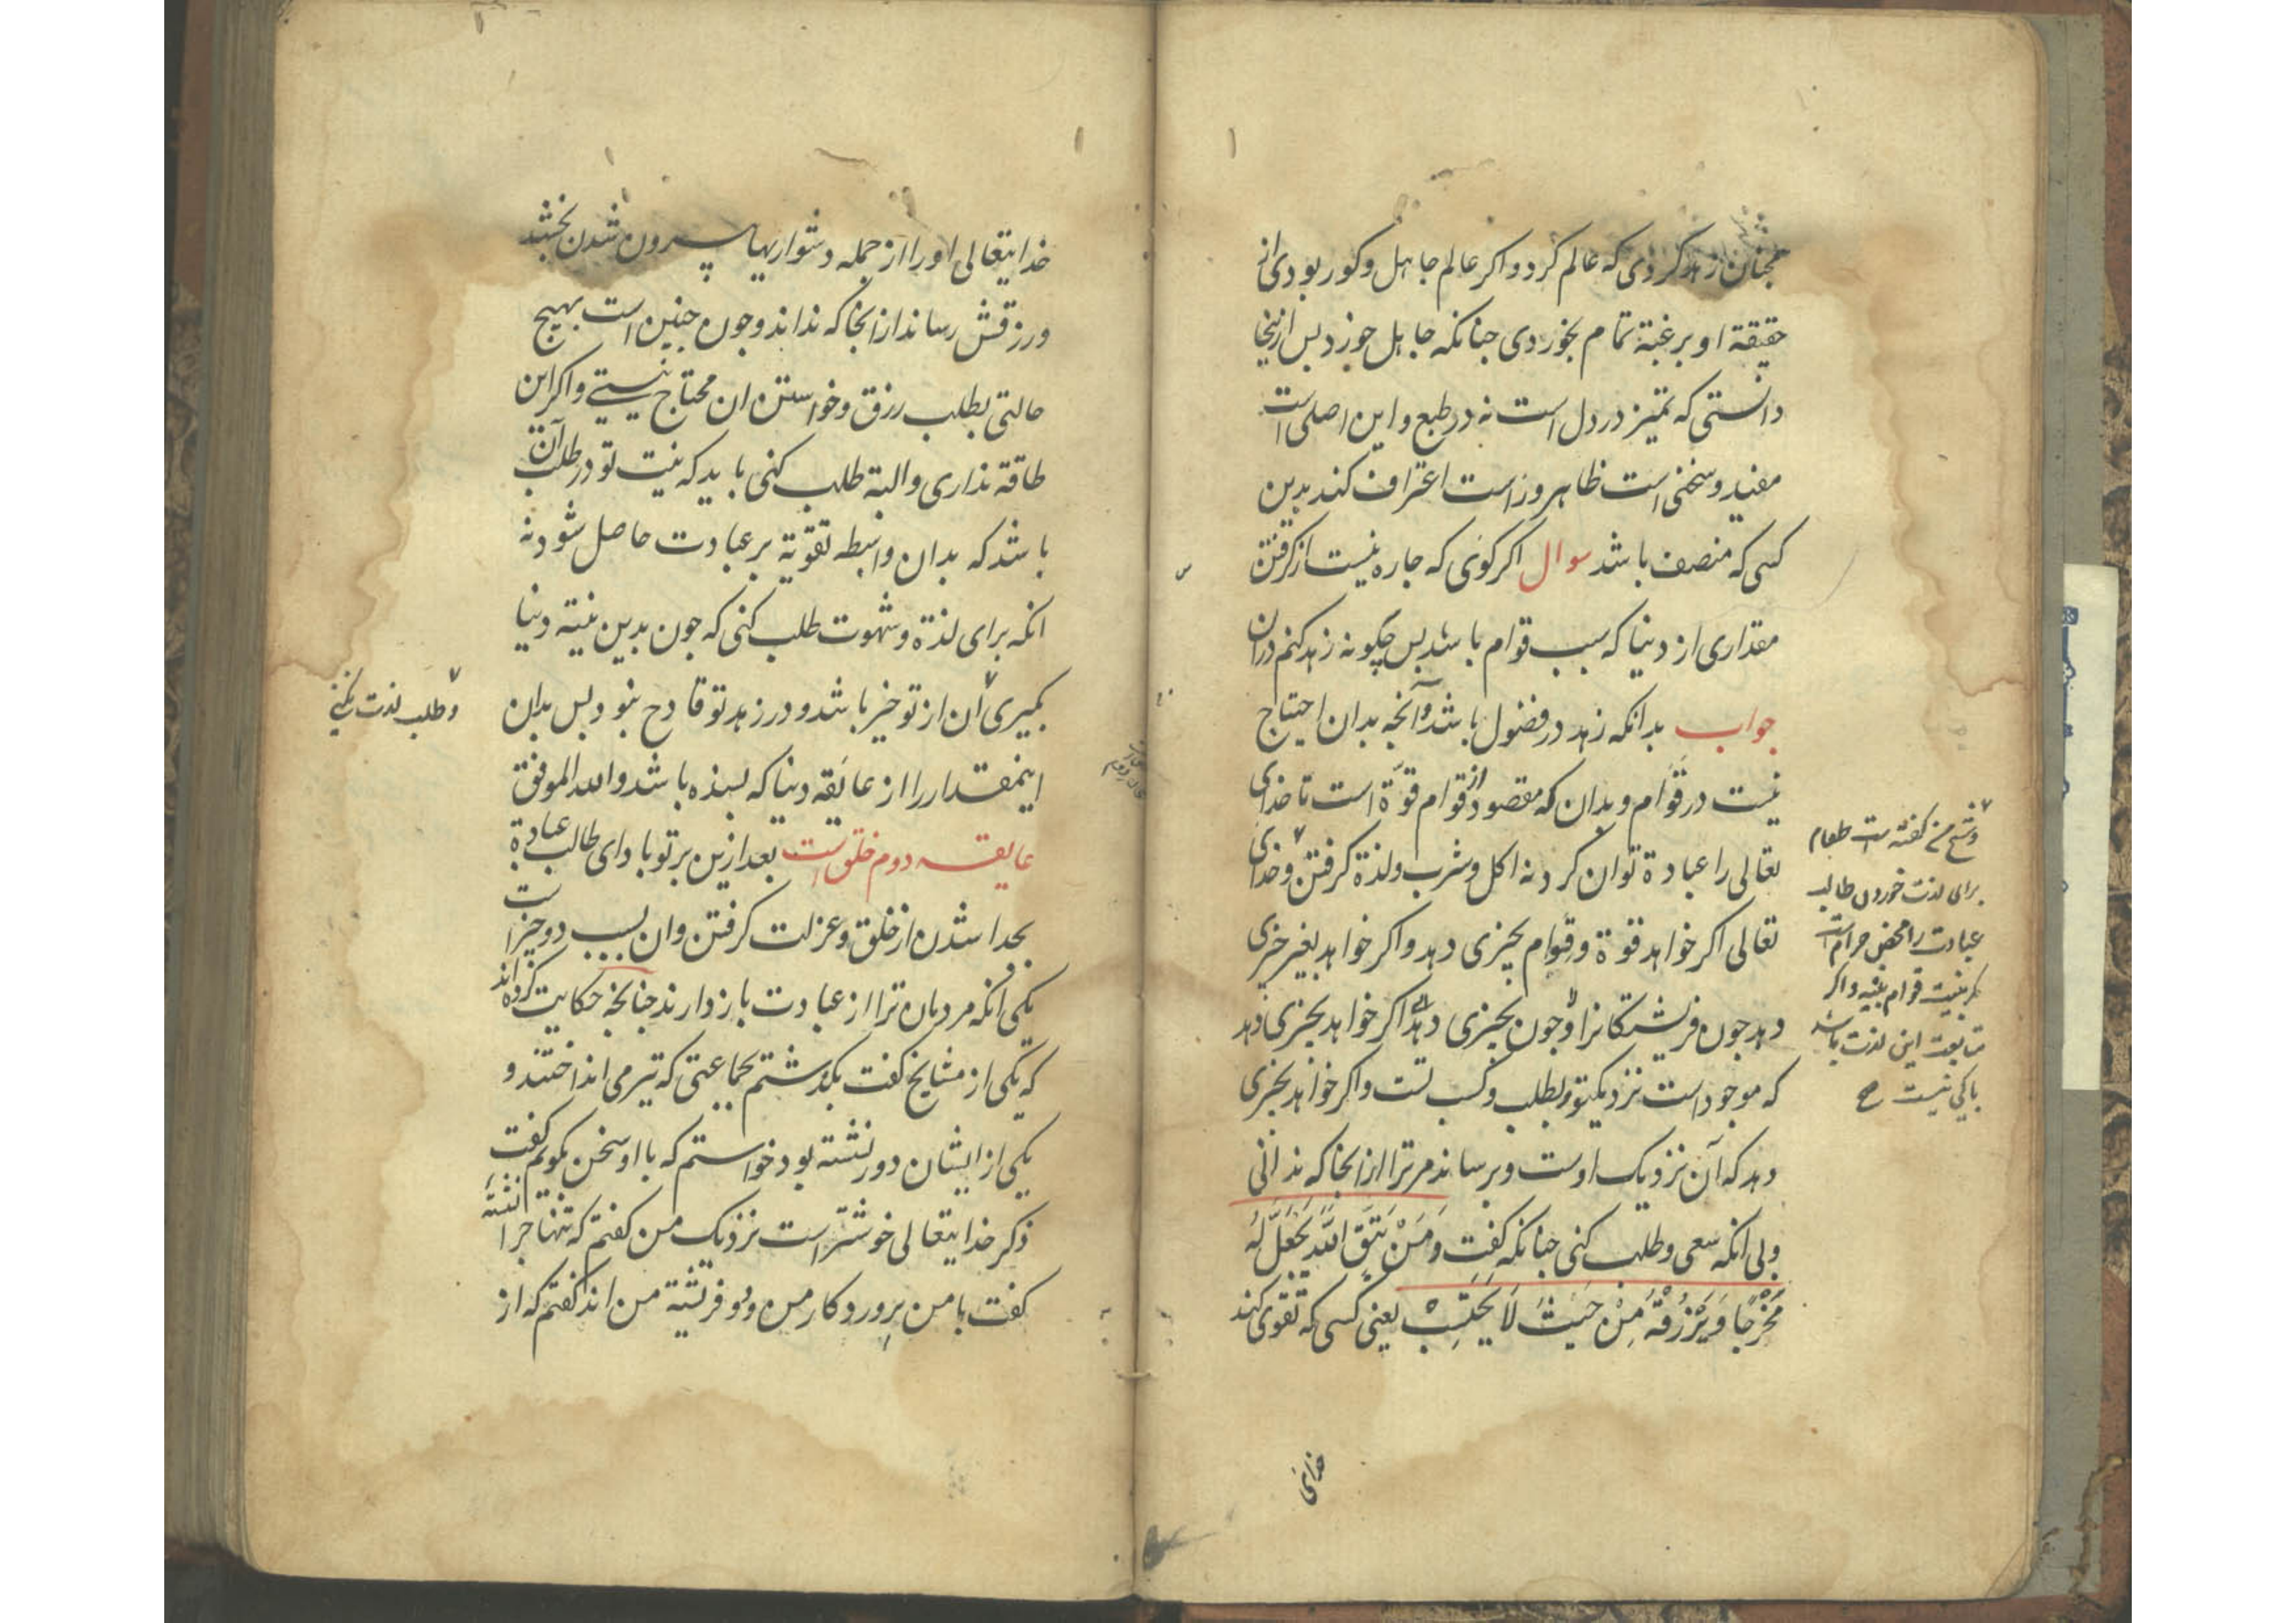 همچنان زهد کردی که عالم کرد و اکر عالم جاهل و کور بودی از
حقیقة او برغبة تمام بخوردی جنانکه جاهل خورد بس ازینجا
دانستی که تمیز در دل است نه در طبع و این اصلی است
مفید و سخنی است ظاهر و راست اعتراف کند بدین
کسی که منصف باشد سوال اکر کوی که جاره نیست از کرفتن
مقداری از دنیا که سبب قوام باشد بس چکونه زهد کنم دران
جواب بدانکه زهد در فضول باشد و آنجه بدان احتیاج
نیست در قوام و بدان که مقصود از قوام قوة است تا خدای
تعالی را عبادة توان کرد نه اکل و شرب و لذة کرفتن و خدای
تعالی اکر خواهد قوة و قوام بجیزی دهد و اکر خواهد بغیر جیزی
دهد جون فریشتکانرا و جون بجیزی دهد اکر خواهد بجیزی دهد
که موجود است نزدیکتو و بطلب و کسب تست و اکر خواهد بجیزی
دهد که آن نزدیک اوست و برساند مر ترا ازانجا که ندانی
و بی انکه سعی و طلب کنی جنانکه کفت وَمَنْ يَتَّقِ اللّٰهَ يَجْعَلْ لَهُ
مَخْرَجًا وَيَرْزُقْهُ مِنْ حَيْثُ لَا يَحْتَسِبْ یعنی کسی که تقوی کند
و شیخ من کفته است طعام
برای لذت خوردن طالب
عبادت را محض حرام است
بنیت قوام و اکر
متابعت این لذت باشد
باکی نیست صح
خدای
خدایتعالی او را از جمله دشواریها بیرون شدن بخشد
و رزقش رساند ازانجا که نداند و جون جنین است بهیج
حالتی بطلب رزق و خواستن ان محتاج نیستی و اکر این
طاقة نداری و البتة طلب کنی باید که نیت تو در طلب آن
باشد که بدان واسطه تقویة بر عبادت حاصل شود نه
انکه برای لذة و شهوت طلب کنی که جون بدین نیتة دنیا
بکیری آن از تو خیر باشد و در زهد تو قادح نبود بس بدان
اینمقدار را از عایقه دنیا که بسنده باشد والله الموفق
عایقه دوم خلق است بعد ازین بر تو بادا ای طالب عبادة
بجدا شدن از خلق و عزلت کرفتن و ان بسبب دو جیز است
یکی انکه مردمان ترا از عبادت بازدارند جنانجه حکایت کرده اند
که یکی از مشایخ کفت بکذشتم بجماعتی که تیر می انداختند و
یکی از ایشان دور نشسته بود خواستم که با او سخن کویم کفت
ذکر خدایتعالی خوشتر است نزدیک من کفتم که تنها جرا نشسته
کفت با من پرورودکار من و دو فریشتة من اند کفتم که از
و طلب لذت نکنی